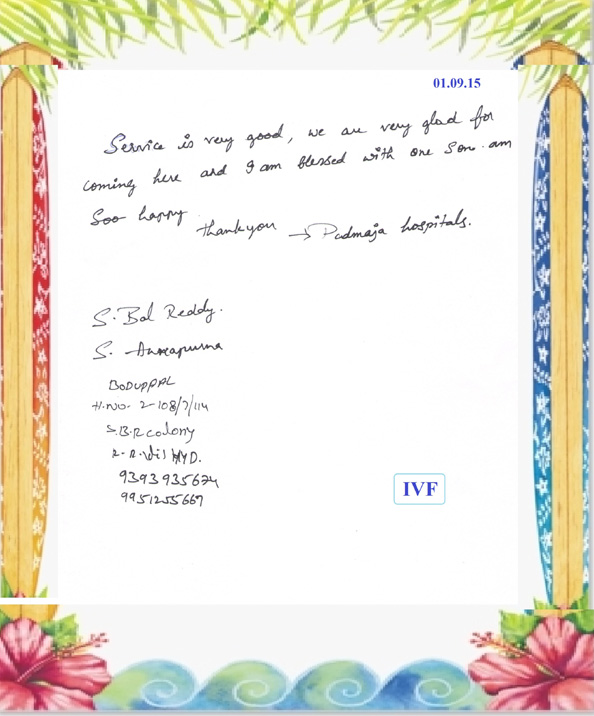 01.09.15
Service is very good, we are very glad for
coming here and I am blessed with one Son. am
Soo happy.
thankyou → Padmaja hospitals.
S. Bal Reddy.
S. Annapurna
BODUPPAL
H.NO. 2-108/7/114
S.B.R colony
R.R. Dil HYD.
9393935624
9951255667
IVF